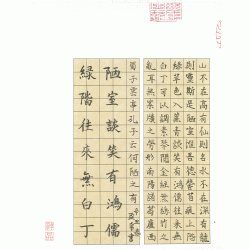 山不在高有仙則名水不在深有龍
則靈斯是陋室惟吾德馨苔痕上階
綠草色入簾青談笑有鴻儒往來無
白丁可以調素琴閱金經無絲竹之
亂耳無案牘之勞形南陽諸葛廬西
蜀子雲亭孔子云何陋之有
陋室談笑有鴻儒
綠階往來無白丁